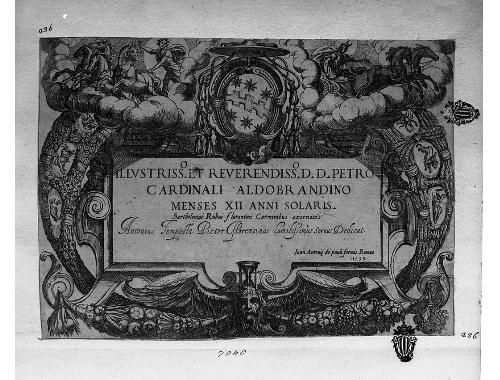 a36
ILLVSTRISS.O ET REVERENDISS.O D. D. PETRO
CARDINALI ALDOBRANDINO
MENSES XII ANNI SOLARIS.
Bartholomæi Rubei florentini Carminibus exornatos
Antonius Tempesta Pictor florentinus humilissimus servus Dedicat.
Joan Antonij de paulis formis Romae
1599
a36
7040